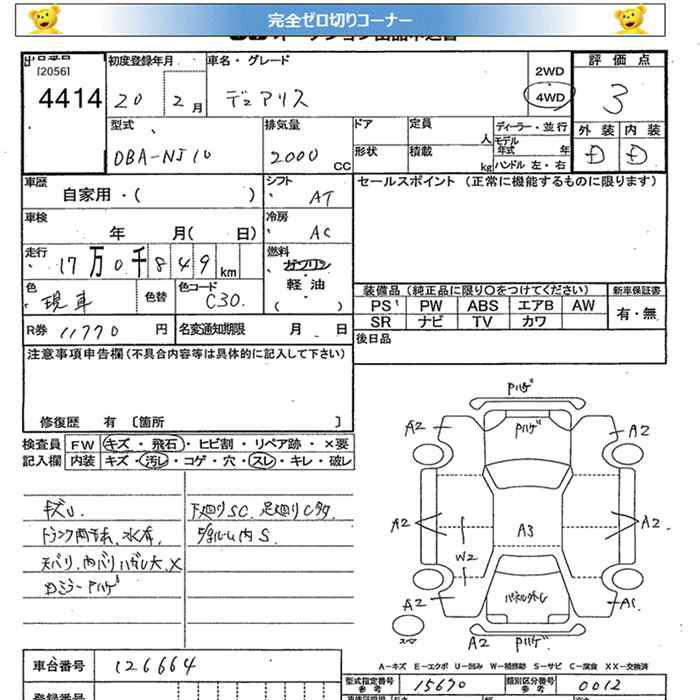 完全ゼロ切りコーナー
[2056]
4414
初度登録年月
20 2月
車名・グレード
デュアリス
2WD
4WD
評価点
3
外装 内装
D D
型式
DBA-NJ10
排気量
2000 CC
ドア
形状
定員 人
積載 kg
ディーラー・並行
モデル年式 年
ハンドル 左・右
車歴
自家用・( )
シフト
AT
セールスポイント (正常に機能するものに限ります)
車検
年 月( 日)
冷房
AC
走行
17万0千849 km
燃料
ガソリン・軽油・( )
色
現車
色替
色コード
C30.
装備品(純正品に限り○をつけてください)
新車保証書
PS PW ABS エアB AW
SR ナビ TV カワ
有・無
R券 11770 円
名変通知期限 月 日
後日品
注意事項申告欄(不具合内容等は具体的に記入して下さい)
修復歴 有 〔箇所 〕
検査員記入欄
FW キズ・飛石・ヒビ割・リペア跡・×要
内装 キズ・汚レ・コゲ・穴・スレ・キレ・破レ
キズU
天バリ、内バリハガレ大、X
ミラーPハゲ
下廻りSC、足廻りC
内S
Pハゲ
Pハゲ
A2
A2
A2
A2
A3
W2
A2
A1
パネル外し
A2 Pハゲ
スペア
A－キズ E－エクボ U－凹み W－補修跡 S－サビ C－腐食 XX－交換済
車台番号
126664
型式指定番号 参考
15670
類別区分番号 参考
0012
登録番号